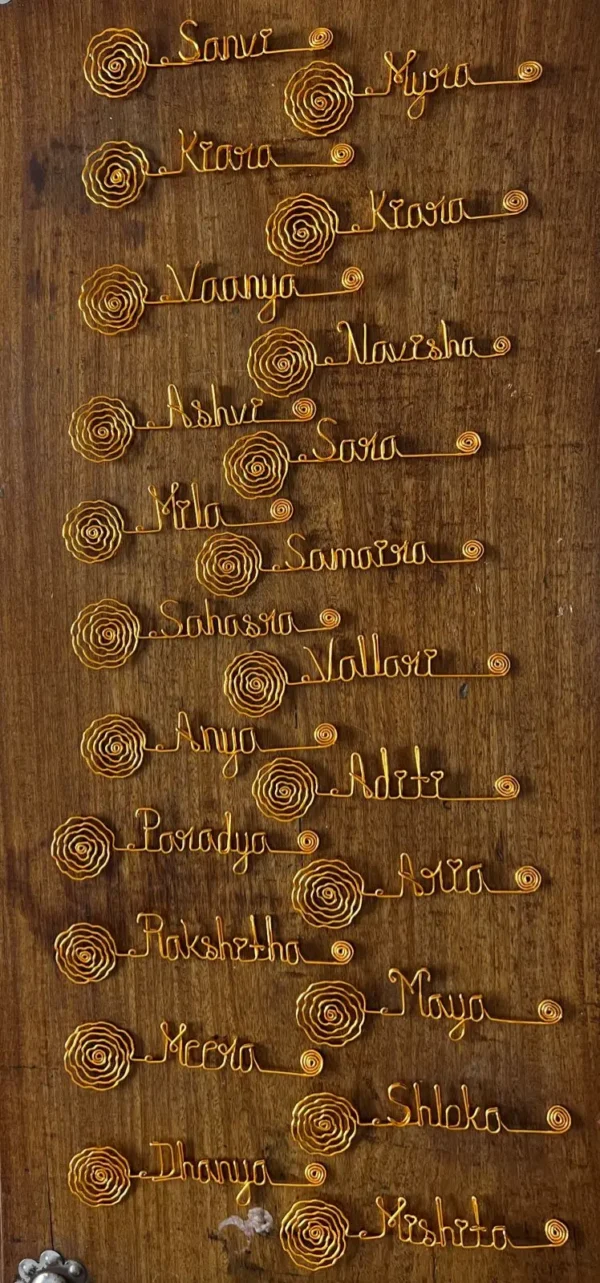 Sanvi
Myra
Kiara
Kiara
Vaanya
Navisha
Ashvi
Sara
Mila
Samaira
Sahasra
Vallari
Anya
Aditi
Paradya
Aria
Rakshitha
Maya
Meera
Shloka
Dhanya
Mishita